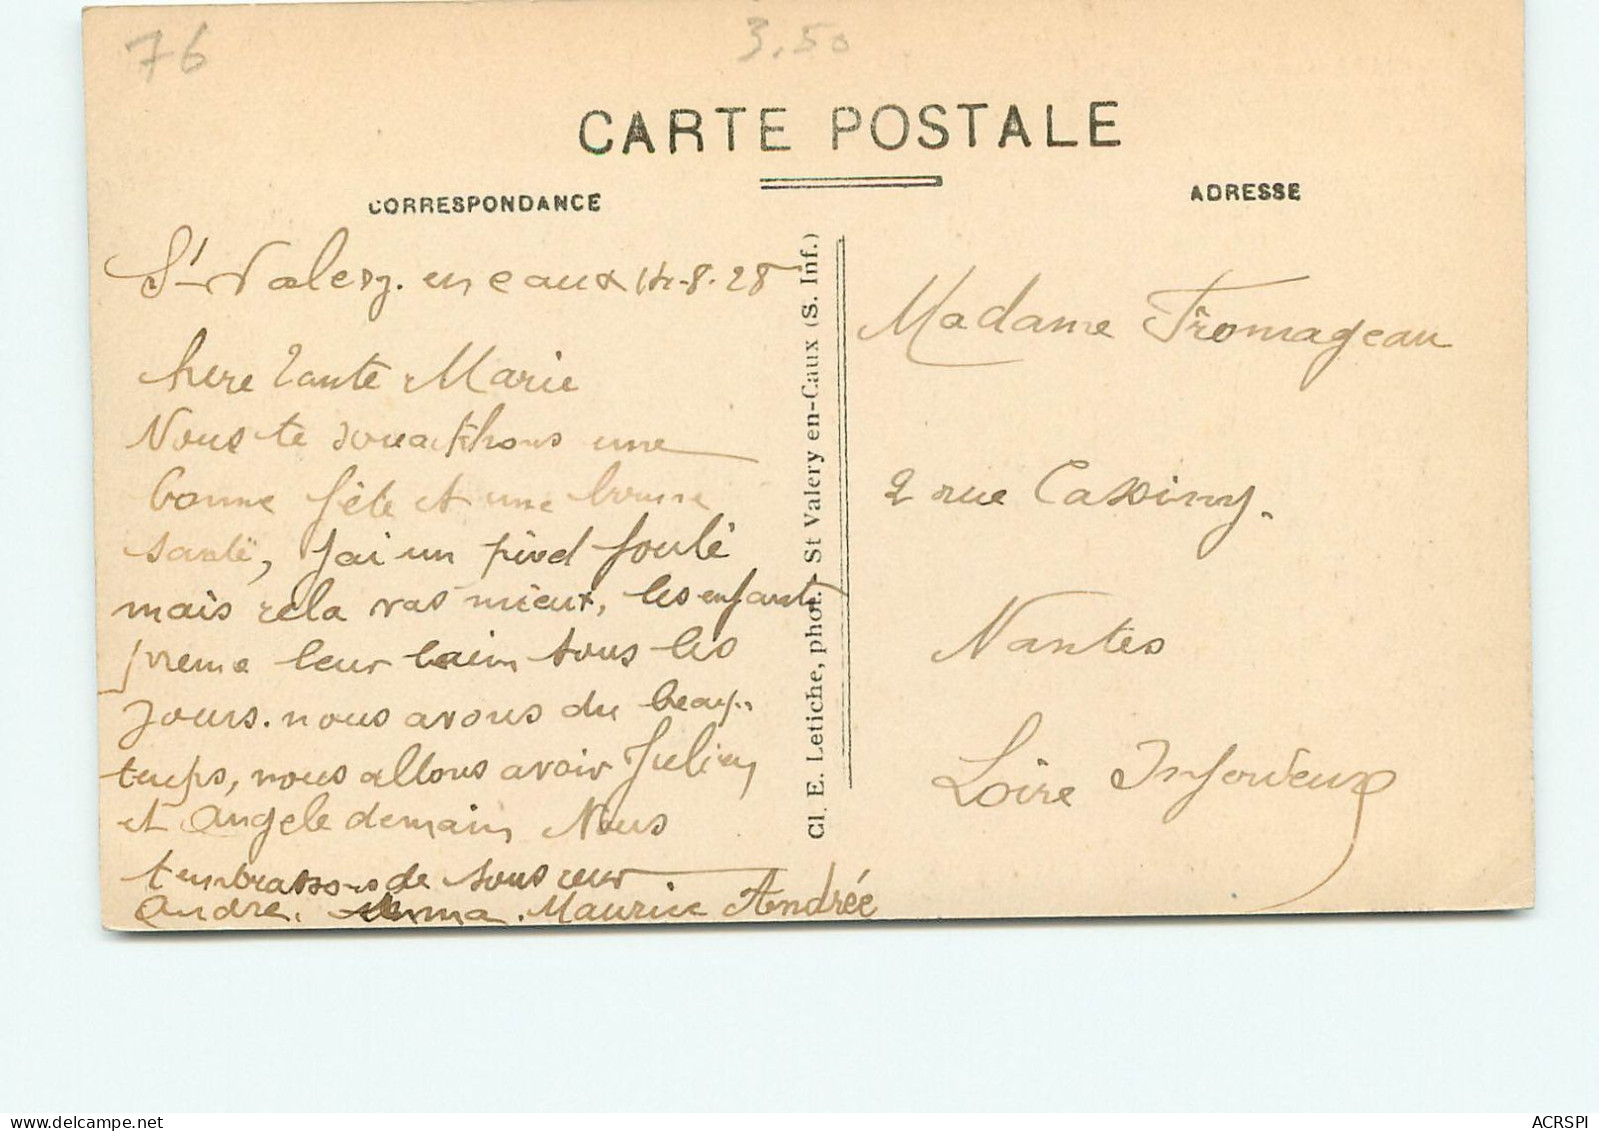 76
3,50
CARTE POSTALE
CORRESPONDANCE
ADRESSE
St Valery. en caux 14-8-28
chere Tante Marie
Nous te souaithons une
bonne fête et une bonne
santé, j'ai un pied foulé
mais cela vas mieux, les enfants
prenne leur bain tous les
jours. nous avons du beau
temps, nous allons avoir Julien
et Angele demain Nous
t'embrassons de tous cœur
André. Emma. Maurice Andrée
Cl. E. Letiche, phot. - St Valery en-Caux (S. Inf.)
Madame Fromageau
2 rue Cassiny.
Nantes
Loire Inferieure
ACRSPI